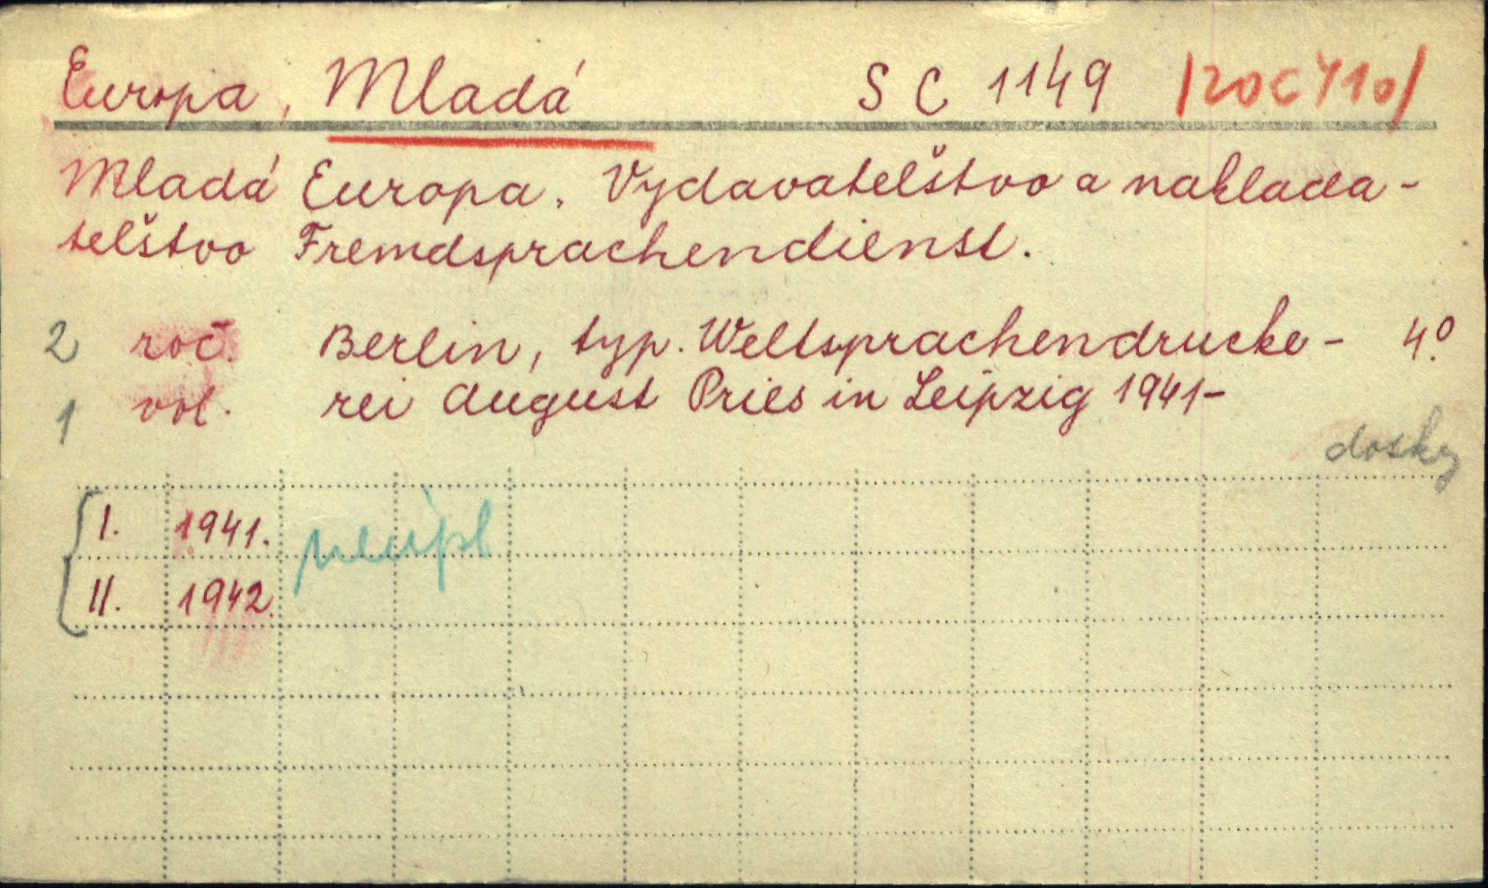 Europa, Mladá S C 1149 /20C Y10/
Mladá Europa. Vydavatelštvo a naklada-
telštvo Fremdsprachendienst.
2 roč. Berlin, typ. Weltsprachendrucke- 4°
1 vol. rei August Pries in Leipzig 1941-
dosky
I. 1941. neúpl
II. 1942